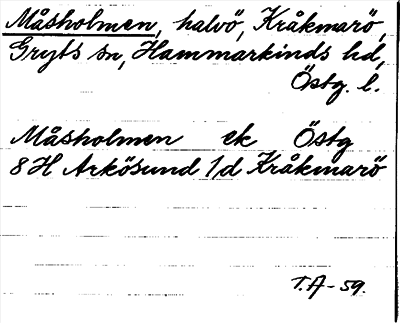 Måsholmen, halvö, Kråkmarö,
Gryts sn, Hammarkinds hd,
Östg. l.
Måsholmen ek Östg
8H Arkösund 1d Kråkmarö
T.A-59.